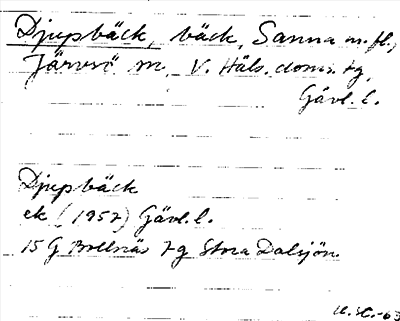 Djupbäck, bäck, Sanna m. fl.,
Järvsö sn. V. Häls. doms. tg,
Gävl. l.
Djupbäck
ek (1957) Gävl. l.
15 G Bollnäs 7g Stora Dalsjön.
-63